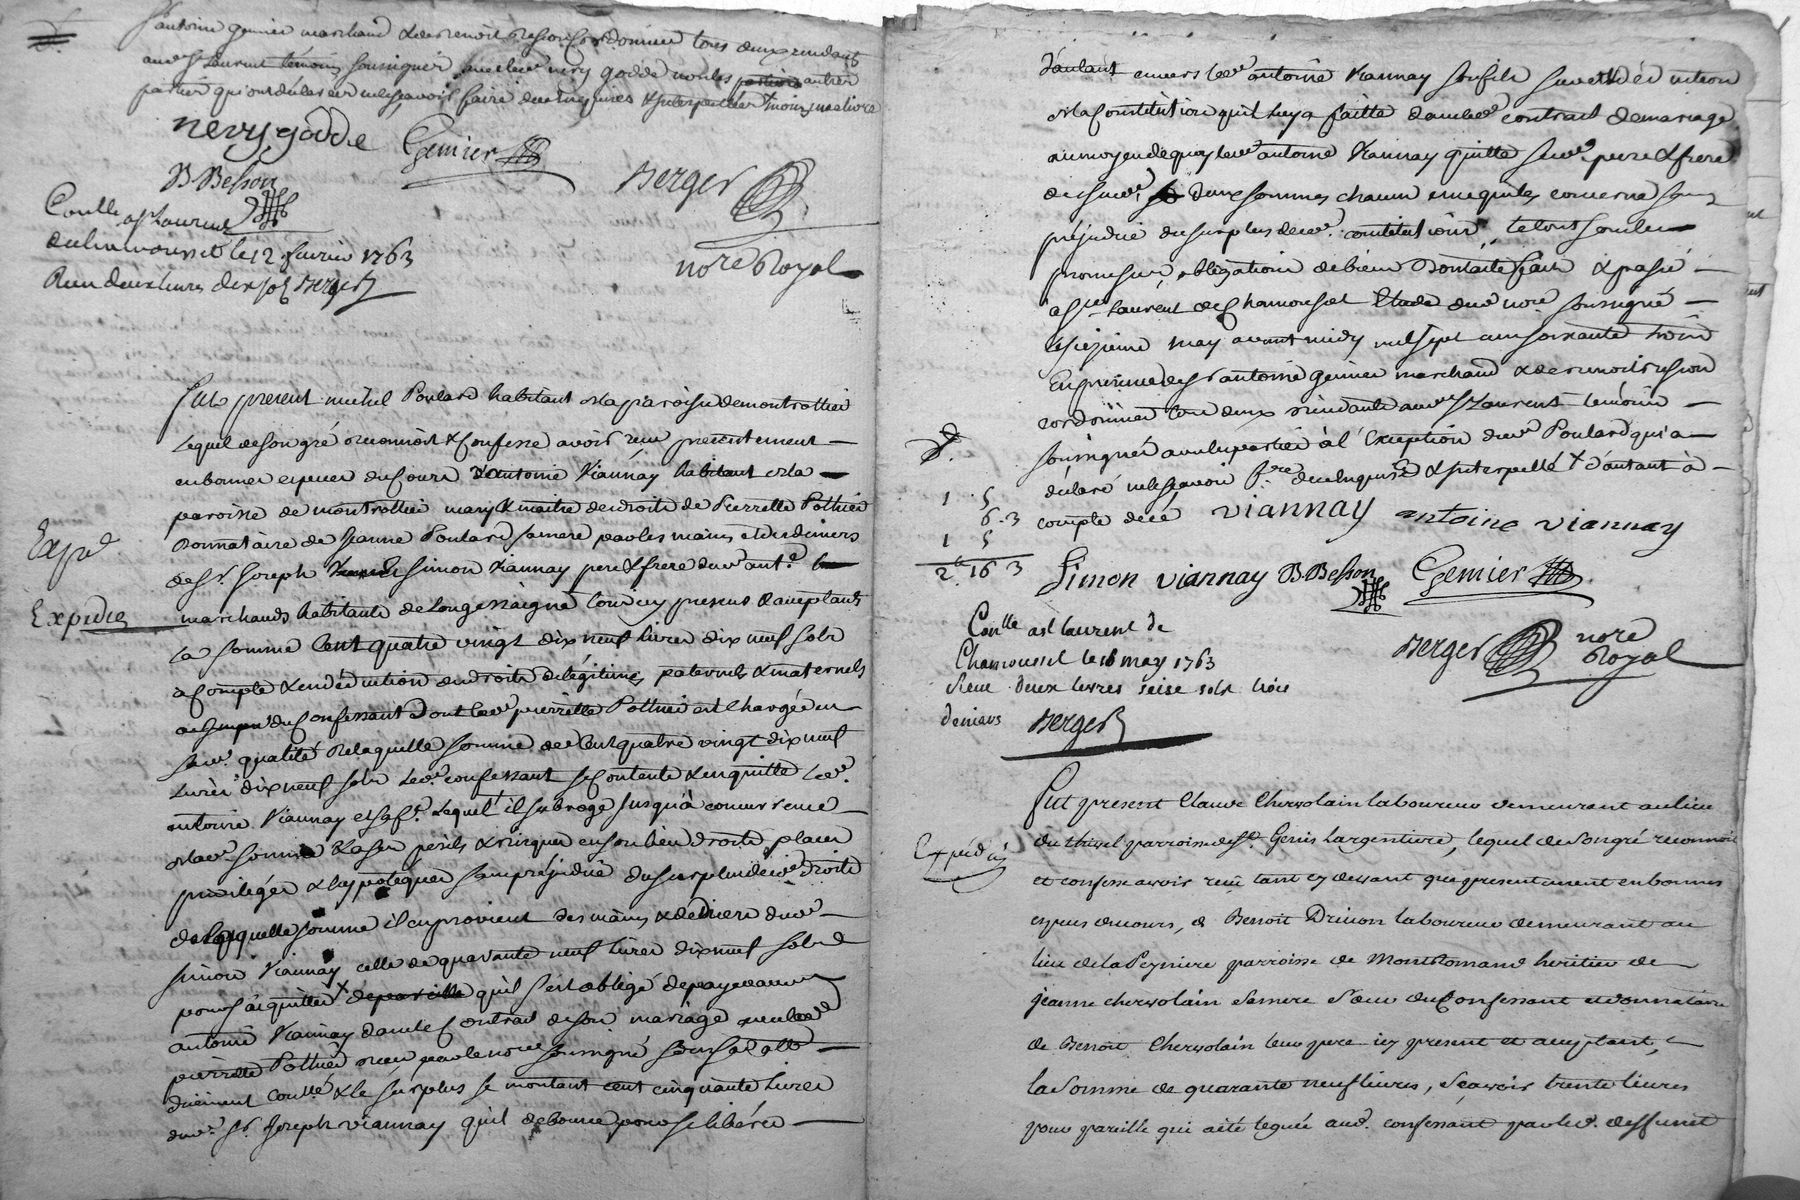 antoine gemier marchand & de benoit besson cordonnier tous deux residant
aud. st Laurent témoins soussignés avec led. nery godde non les autres
parties qui ont déclaré ne sçavoir faire de ce enquises & interpellées
nery godde Gemier
B Besson Berger
nore Royal
Conllé a st Laurent
de chamousset le 12 fevrier 1763
Reçu deux livres dix sols Berger
Fut present michel Poulard habitant en la paroisse de montrottier
Lequel de son gré reconnoit & confesse avoir reçu presentement
en bonnes especes du cours d'antoine Viannay habitant en la
paroisse de montrottier mary & maitre des droits de Pierrette Pothier
Donnataire de Jeanne Poulard sa mere par les mains et des deniers
de Sr. Joseph & Simon Viannay pere & frere dud. ant.e
Expé
Expedié
marchands habitants de Longessaigne tous icy presens & acceptants
La somme Cent quatre vingt dix neuf Livres dix neuf sols
a Compte & en déduction des droits de légitimes paternels & maternels
du Confessant dont lad. pierrette Pothier est Chargée en
sad. qualité De laquelle somme de Cent quatre vingt dix neuf
Livres dix neuf sols Led. confessant se contente & en quitte led.
antoine Viannay et sa fe. Lequel il subroge jusqu'à concurrence
de lad. somme & a ses perils & risques en son lieu droits, places
privileges & hypoteques sans préjudice du surplus de ses droits
de Laquelle somme il en provient des mains & deniers dud.
simon Viannay celle de quarante neuf Livres dix neuf sols
pour s'acquitter de pareille qu'il s'est obligé de payer aud.
antoine Viannay dans le Contrat de son mariage avec lad.
pierrette Pothier reçu par le nore soussigné
duement Conllé & le surplus se montant cent cinquante Livres
dud. Sr. Joseph Viannay qu'il débourse pour se libérer
D'autant envers led. antoine Viannay son fils sur et déduction
de la Constitution qu'il luy a faitte dans led. contrat de mariage
au moyen de quoy led. antoine Viannay quitte sesd. pere & frere
desd. deux sommes chacun en ce qui les concerne sans
préjudice du surplus desd. constitutions, le tout sous les
promesses, obligations de biens Dont acte fait & passé
a st Laurent de Chamousset Etude dud. nore soussigné
le seizieme may avant midy mil sept cens soixante trois
En presence de Sr antoine gemier marchand & de benoit besson
cordonnier tous deux residants aud. st Laurent temoins
soussignés avec les parties à l'Exception dud. Poulard qui a
déclaré ne sçavoir fre. de ce enquis & interpellé X d'autant à
compte de ce Viannay antoine Viannay
1 5
6. 3
1 5
2 16 3
Simon Viannay B. Besson Gemier
Berger nore Royal
Conllé a st laurent de
Chamousset le 18 may 1763
Reçu deux livres seise sols trois
deniers Berger
Fut present Claude Chersolain laboureur demeurant au lieu
du thivel parroisse de St. Genis Largentiere, lequel de son gré reconnoit
Expédié
et confesse avoir reçu tant cy devant que presentement en bonnes
especes du cours, de Benoit Drivon laboureur demeurant au
lieu de la Peyniere parroisse de Montromand heritier de
jeanne chersolain sa mere soeur du Confessant et donnataire
de Benoit Chersolain leur pere icy present et acceptant,
la somme de quarante neuf livres, sçavoir trente livres
pour pareille qui a été leguée aud. confessant par led. deffunt